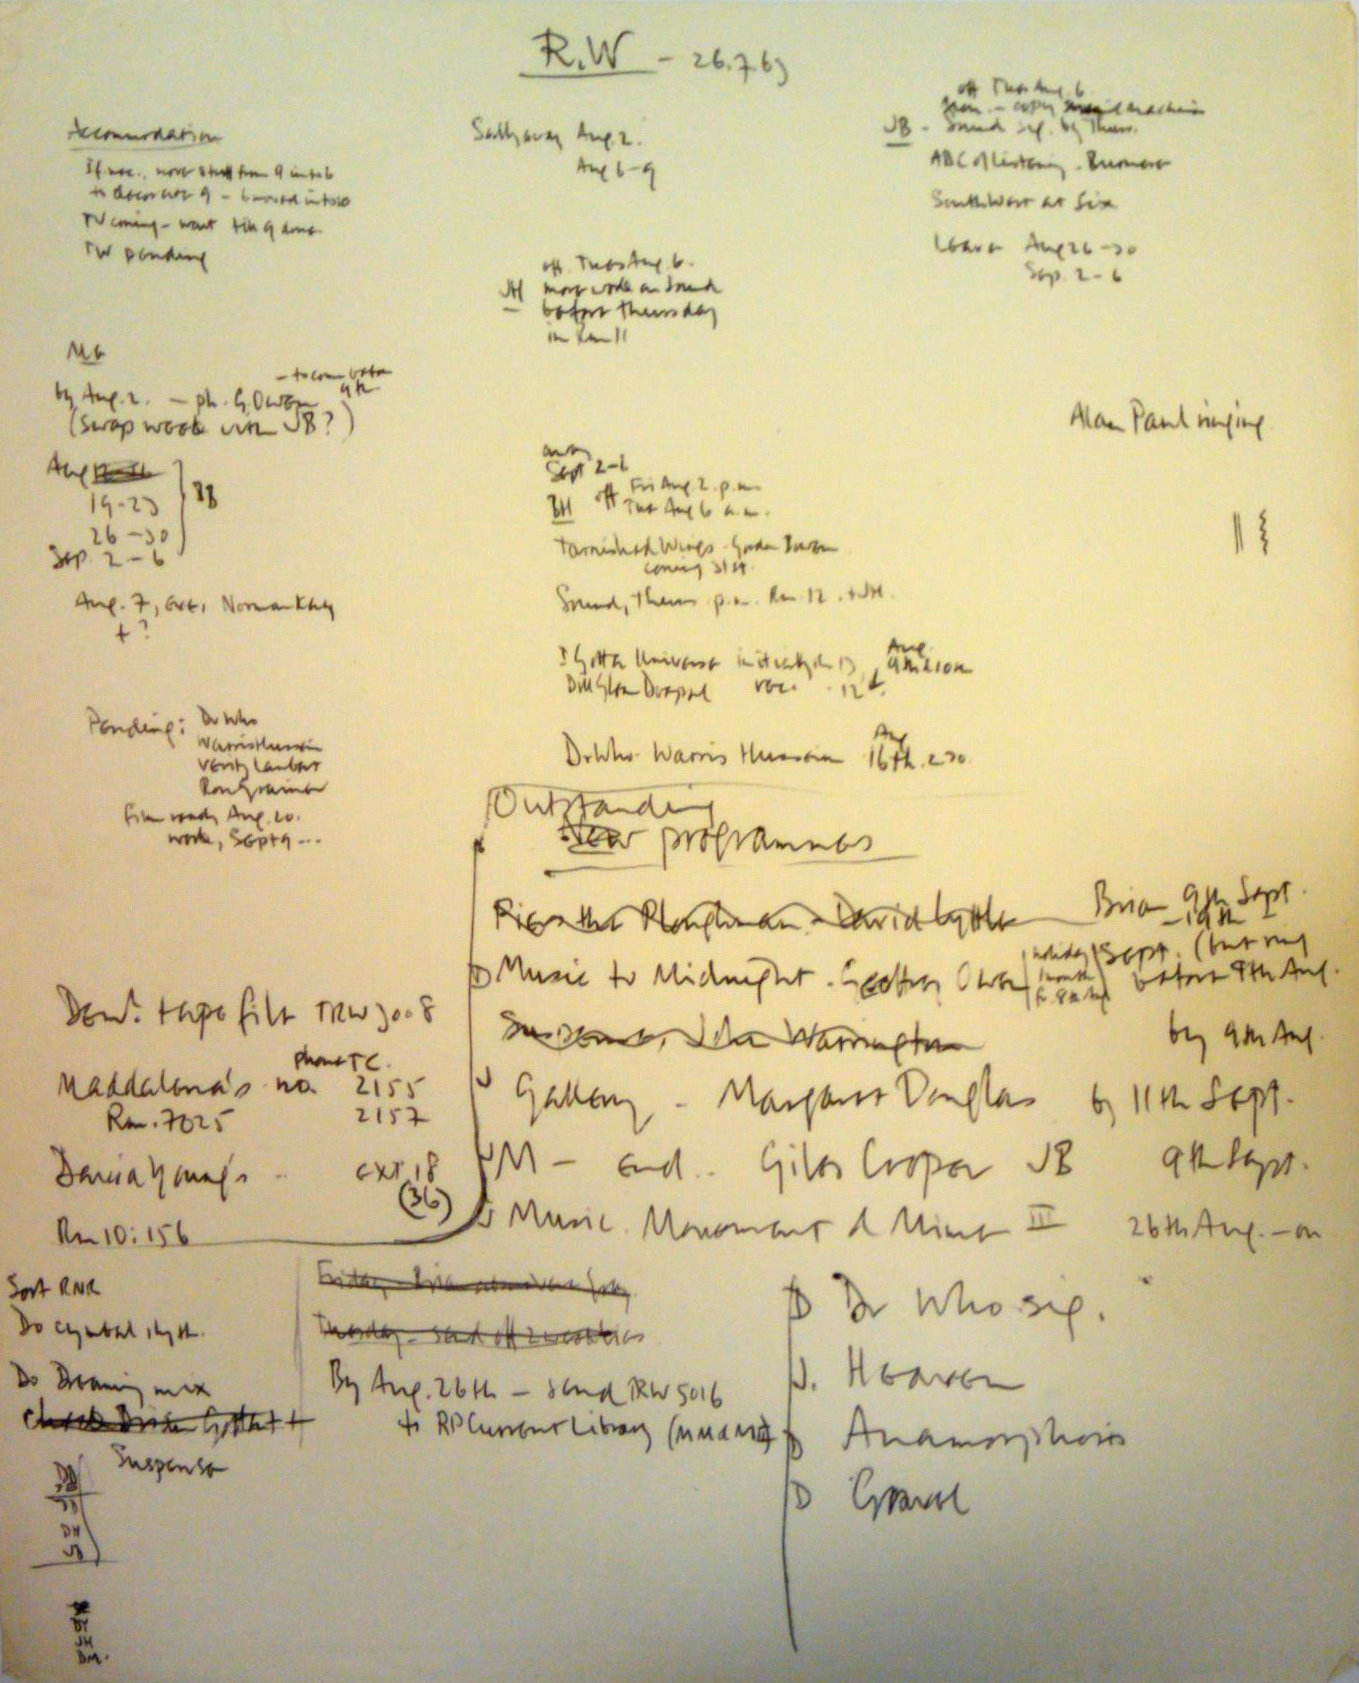 R.W - 26.7.63
Accommodation
If nec., move stuff from 9 into 6
to decorate 9 - 6 moved into 10
TV coming - want till 9 done
TW pending
Sally away Aug 2.
Aug 6-9
off Tues Aug 6
JB - Sound sig. by Thurs.
ABC of Listening.
South West at Six
Leave Aug 26-30
Sep. 2-6
off. Tues Aug. 6.
JH more work on Sound
before Thursday
in Rm 11
MG
by Aug. 2. - ph. G. Owen
(Swap week with JB?)
Aug
19-23
26-30
Sep. 2-6
Aug. 7, eve, Norman Kay
+ ?
Alan Paul ringing
away
Sept 2-6
BH off Fri Aug. 2. p.m
Tue Aug 6 a.m.
Tarnished Wings - Gordon Bowen
coming 31st.
Sound, Thurs. p.m. Rm. 12. + JH.
Pending: Dr Who
Warris Hussein
Verity Lambert
Ron Grainer
Film ready Aug. 20.
work, Sept 9 ...
I Gotta Universe
Dr Who. Warris Hussein Aug 16th. 2.30
Outstanding
New programmes
Piers the Ploughman - David Lyttle Brian 9th Sept.
- 19th
Music to Midnight. Geoffrey Owen (holiday 1 month fr. 8th Aug) Sept. (but ring before 9th Aug.
Suspense, John Warrington by 9th Aug.
Gallery - Margaret Douglas by 11th Sept.
M - end.. Giles Cooper JB 9th Sept.
Music. Movement & Mime III 26th Aug. - on
Dem. tape filt TRW 3008
phone TC.
Maddalena's no. 2155
Rm. 7025 2157
Daria Young's - ext. 18
(36)
Rm 10:156
Sort RNR
Do cymbal rhyth.
Do Dreaming mix
Suspense
By Aug. 26th - send TRW 5016
to RP Current Library
D Dr Who sig.
J. Heaven
D Anamorphosis
D Gravel
DD
JB
DH
JB
DY
JH
DM.